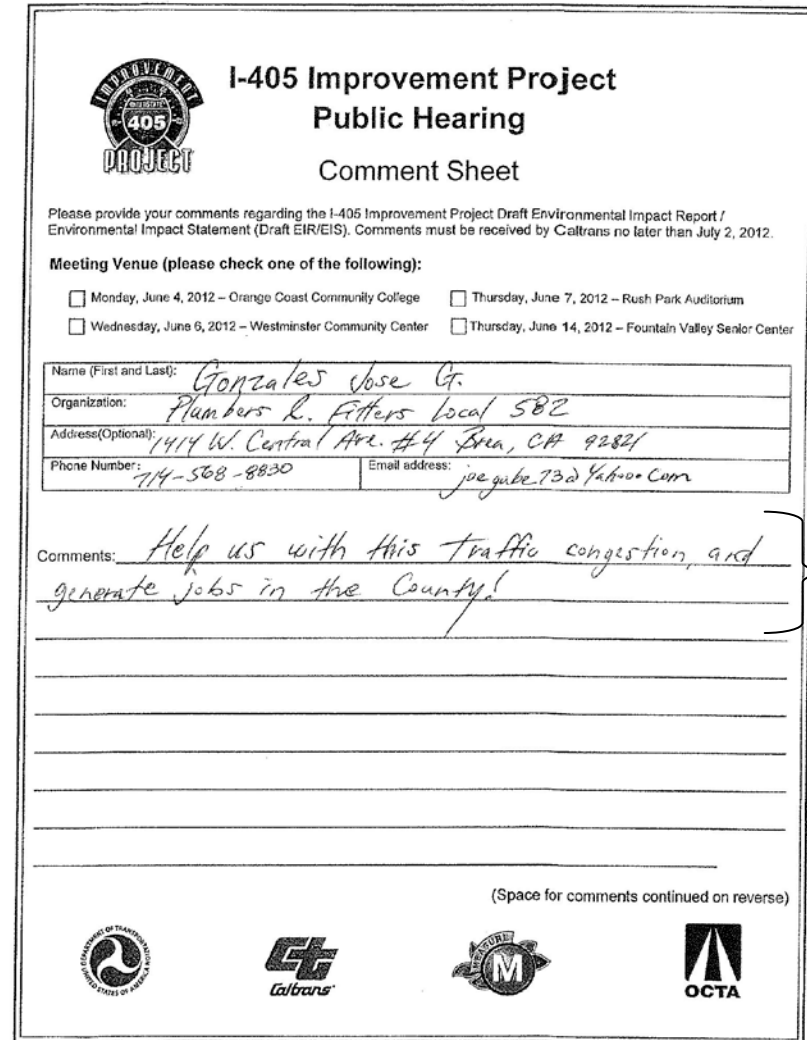 IMPROVEMENT
INTERSTATE
405
PROJECT
I-405 Improvement Project
Public Hearing
Comment Sheet
Please provide your comments regarding the I-405 Improvement Project Draft Environmental Impact Report /
Environmental Impact Statement (Draft EIR/EIS). Comments must be received by Caltrans no later than July 2, 2012.
Meeting Venue (please check one of the following):
Monday, June 4, 2012 – Orange Coast Community College
Thursday, June 7, 2012 – Rush Park Auditorium
Wednesday, June 6, 2012 – Westminster Community Center
Thursday, June 14, 2012 – Fountain Valley Senior Center
Name (First and Last): Gonzales Jose G.
Organization: Plumbers & Fitters Local 582
Address(Optional): 1414 W. Central Ave. #4 Brea, CA 92821
Phone Number: 714-568-8830
Email address: joegabe73@Yahoo.Com
Comments: Help us with this Traffic congestion, and
generate jobs in the County!
(Space for comments continued on reverse)
DEPARTMENT OF TRANSPORTATION
UNITED STATES OF AMERICA
Caltrans
MEASURE
M
OCTA